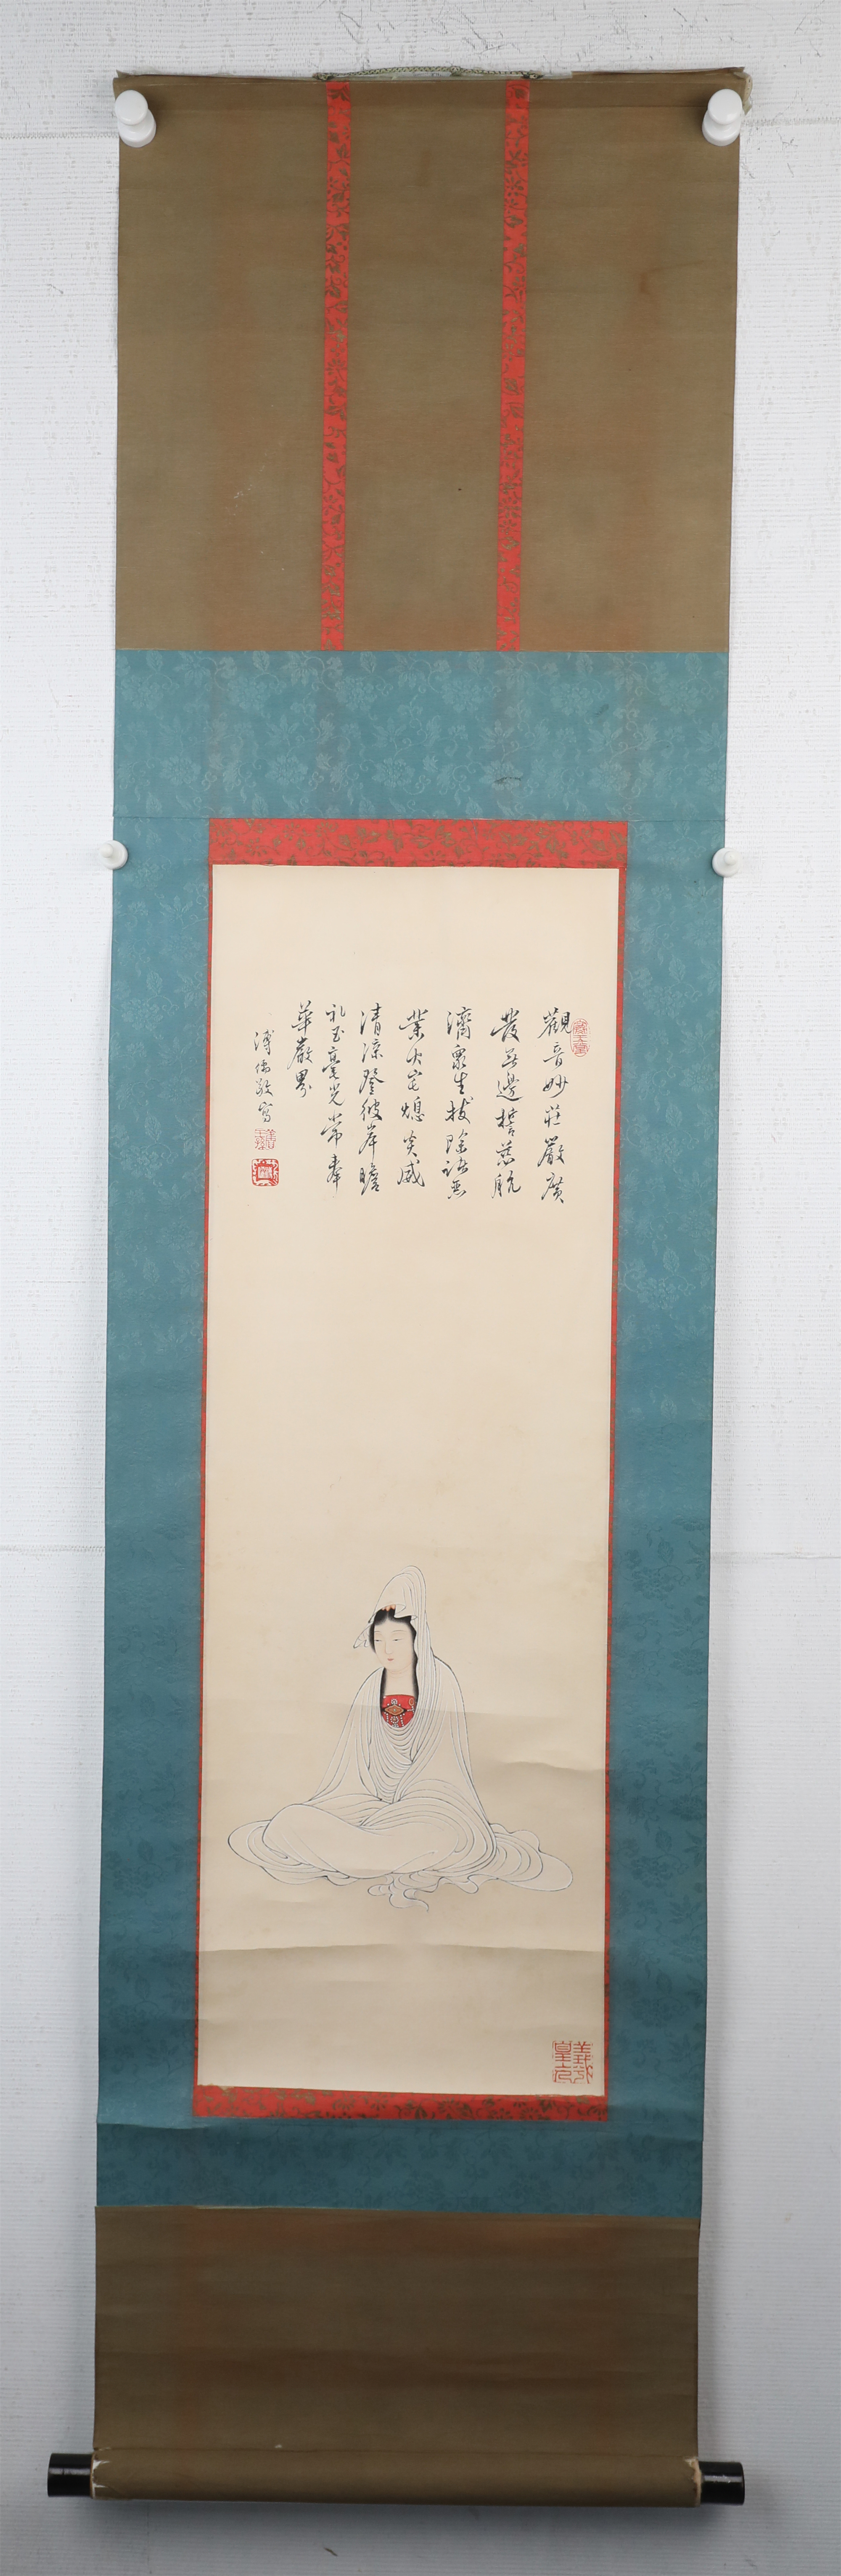 觀音妙莊嚴廣
發無邊誓慈航
濟眾生拔除諸惡
業火宅熄炎威
清涼登彼岸瞻
礼玉毫光常奉
華嚴界
溥儒敬寫
羲皇